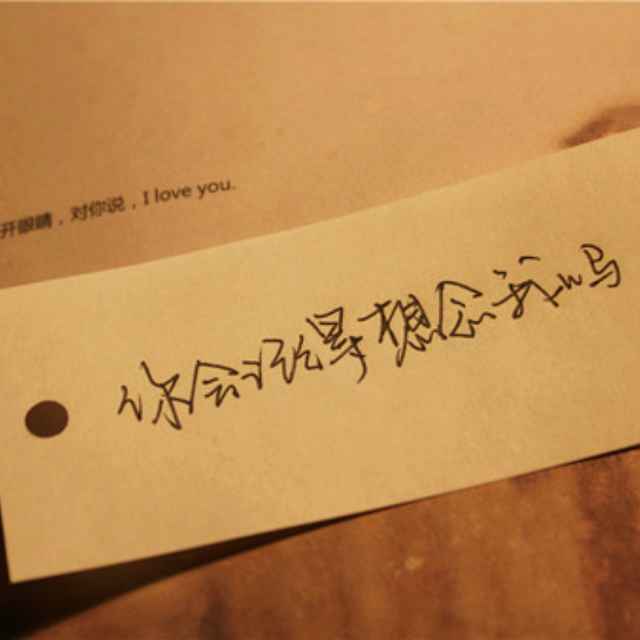 开眼睛，对你说，I love you.
你会读得想念我吗